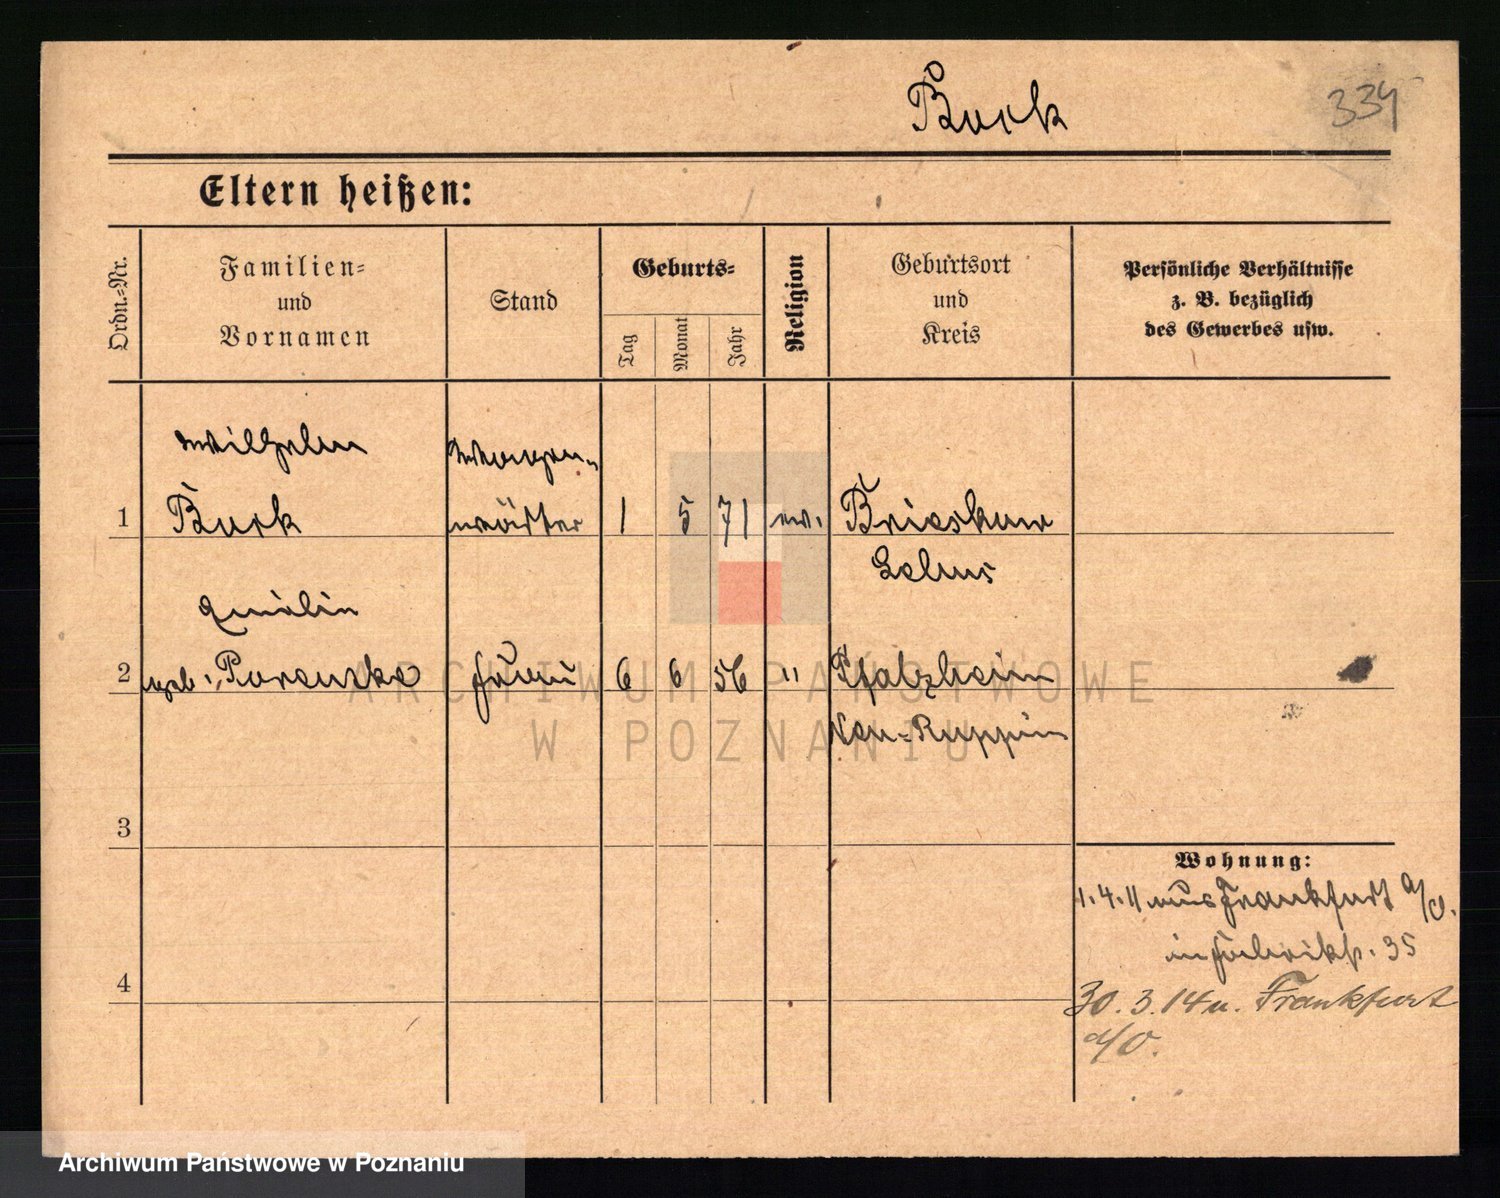 Buck
334
Eltern heißen:
Ordn.=Nr.
Familien=
und
Vornamen
Stand
Geburts=
Tag
Monat
Jahr
Religion
Geburtsort
und
Kreis
Persönliche Verhältnisse
z. B. bezüglich
des Gewerbes usw.
Wilhelm
Wagen-
1 Buck wärter 1 5 71 ev. Brieskow
Lebus
2 geb. Frau 6 6 56 " Pfalzheim
Neu-Ruppin
3
4
Wohnung:
1.4.11 aus Frankfurt a/O.
in Fabrikst. 35
30.3.14 n. Frankfurt
a/O.
ARCHIWUM PAŃSTWOWE
W POZNANIU
Archiwum Państwowe w Poznaniu